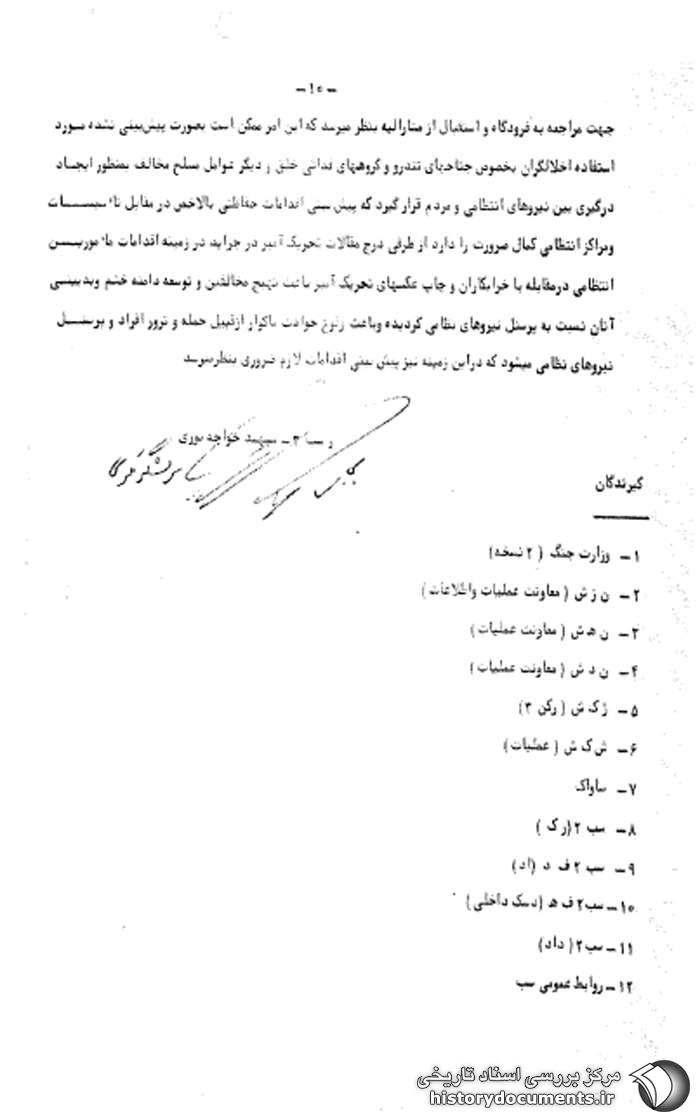 -۱۰-
جهت مراجعه به فرودگاه و استقبال از مشارالیه بنظر میرسد که این امر ممکن است بصورت پیش‌بینی نشده مورد
استفاده اخلالگران بخصوص جناحهای تندرو و گروههای فدائی خلق و دیگر عوامل مسلح مخالف بمنظور ایجاد
درگیری بین نیروهای انتظامی و مردم قرار گیرد که پیش بینی اقدامات حفاظتی بالاخص در مقابل تأسیسات
ومراکز انتظامی کمال ضرورت را دارد از طرفی درج مقالات تحریک آمیز در جراید در زمینه اقدامات مأمورین
انتظامی درمقابله با خرابکاران و چاپ عکسهای تحریک آمیز باعث تهییج مخالفین و توسعه دامنه خشم وبدبینی
آنان نسبت به پرسنل نیروهای نظامی گردیده وباعث وقوع حوادث ناگوار ازقبیل حمله و ترور افراد و پرسنل
نیروهای نظامی میشود که دراین زمینه نیز پیش بینی اقدامات لازم ضروری بنظرمیرسد
ر ۲ - سپهبد خواجه نوری
گیرندگان
۱- وزارت جنگ (۲ نسخه)
۲- ن ز ش (معاونت عملیات واطلاعات)
۳- ن ه ش (معاونت عملیات)
۴- ن د ش (معاونت عملیات)
۵- ژ ک ش (رکن ۳)
۶- ش ک ش (عملیات)
۷- ساواک
۸- سب ۲ (رک)
۹- سب ۲ ف د (اد)
۱۰- سب۲ ف ه (دسک داخلی)
۱۱- سب۲ (داد)
۱۲- روابط عمومی سب
مرکز بررسی اسناد تاریخی
historydocuments.ir